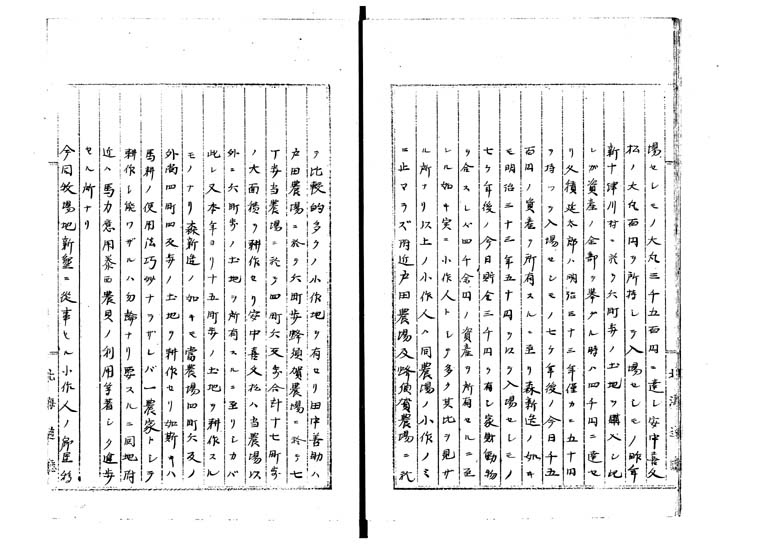 場セシモノ大丸三千五百円ニ達シ安中喜久
松ノ大丸百円ヲ所持シテ入場セシモノ昨年
新十津川村ニ於テ六町歩ノ土地ヲ購入シ此
レガ資産ノ全部ヲ挙グル時ハ四千円ニ達セ
リ久積延太郎ハ明治三十三年僅カニ五十円
ヲ持ツテ入場セシモノ七ケ年後ノ今日千五
百円ノ資産ヲ所有スルニ至リ森新造ノ如キ
モ明治三十三年五十円ヲ以テ入場セシモノ
七ケ年後ノ今日貯金三千円ヲ有シ家財動物
ヲ合スレバ四千余円ノ資産ヲ所有セルニ至
レル如キ実ニ小作人トシテ多ク其比ヲ見ザ
ル所ナリ以上ノ小作人ハ同農場ノ小作ノミ
ニ止マラズ附近戸田農場及蜂須賀農場ニ於
テ比較的多クノ小作地ヲ有セリ田中善助ハ
戸田農場ニ於テ六町歩蜂須賀農場ニ於テ七
丁歩当農場ニ於テ四町六反歩合計十七町歩
ノ大面積ヲ耕作セリ安中喜久松ハ当農場以
外ニ六町歩ノ土地ヲ所有スルニ至リシカバ
此レ又本年ヨリ十五町歩ノ土地ヲ耕作スル
モノナリ森新造ノ如キモ當農場四町六反ノ
外尚四町四反歩ノ土地ヲ耕作セリ如斯キハ
馬耕ノ使用法巧妙ナラザレバ一農家トシテ
耕作シ能ワザルハ勿論ナリ要スルニ同地附
近ハ馬力應用泰西農具ノ利用等著シク進歩
セル所ナリ
今同牧場地新墾ニ従事セル小作人ノ
北海道廳
北海道廳